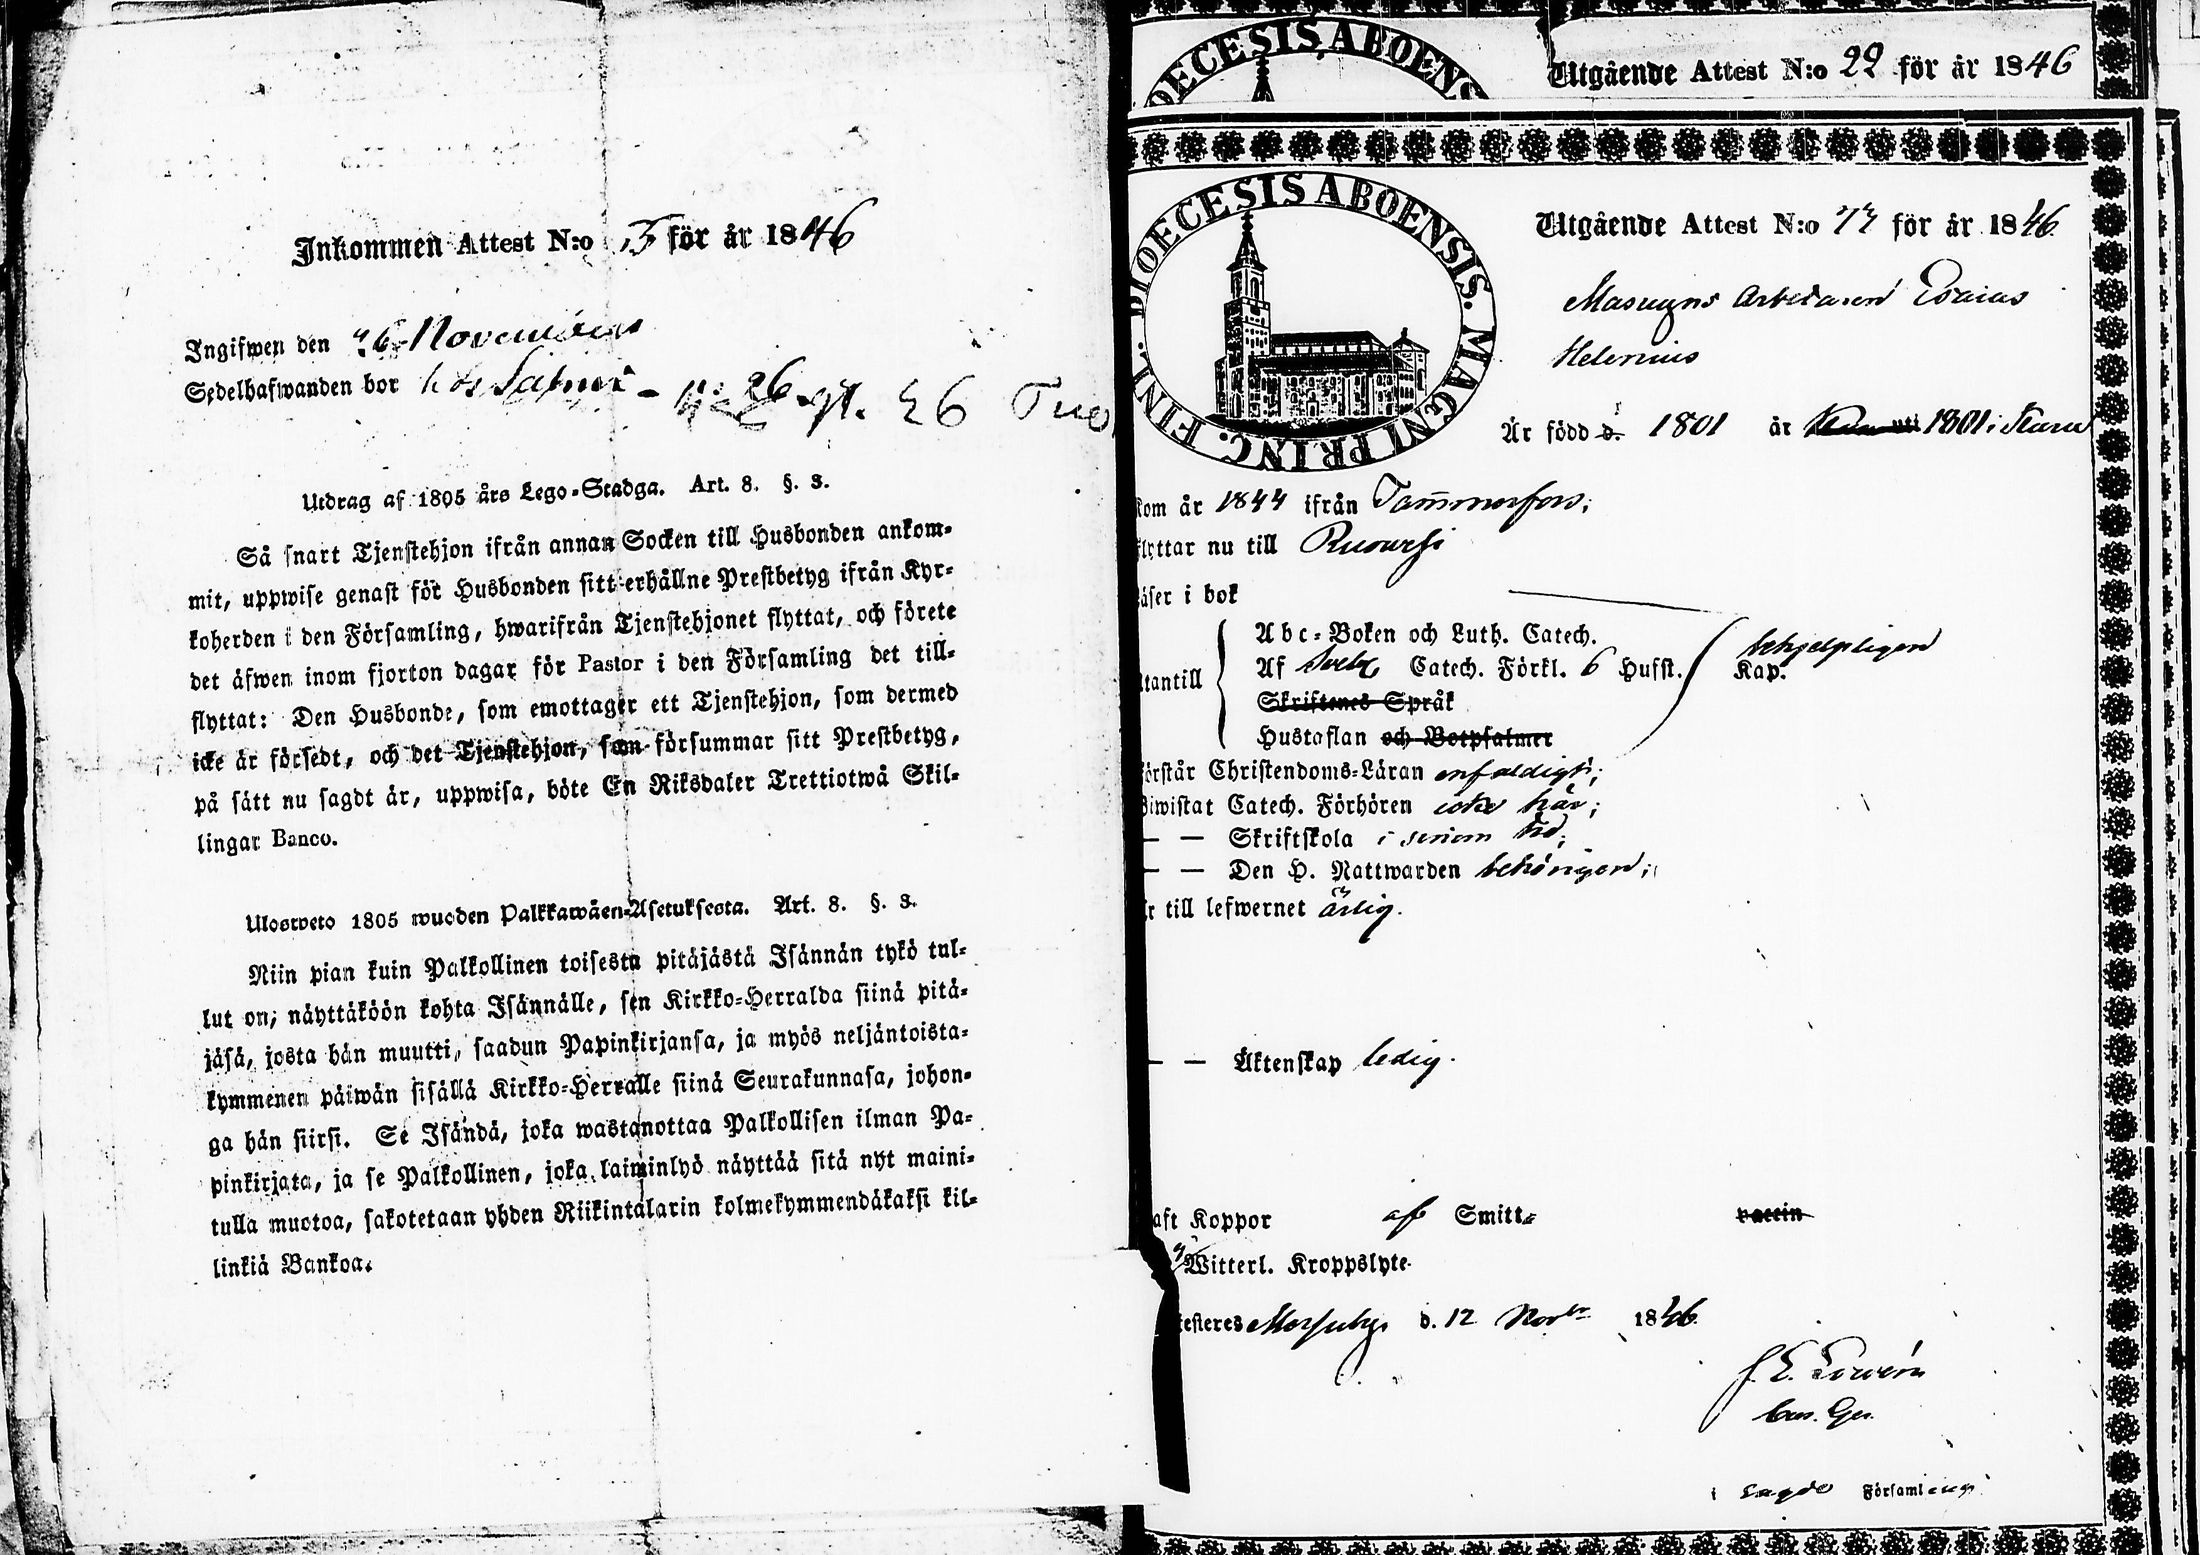 Inkommen Attest N:o för år 1846
Ingifwen den 26 November
Sedelhafwanden bor hos
Utdrag af 1805 års Lego-Stadga. Art. 8. §. 3.
Så snart Tjenstehjon ifrån annan Socken till Husbonden ankom-
mit, uppwise genast för Husbonden sitt erhållne Prestbetyg ifrån Kyr-
koherden i den Församling, hwarifrån Tjenstehjonet flyttat, och förete
det äfwen inom fjorton dagar för Pastor i den Församling det till-
flyttat: Den Husbonde, som emottager ett Tjenstehjon, som dermed
icke är försedt, och det Tjenstehjon, som försummar sitt Prestbetyg,
på sätt nu sagdt är, uppwisa, böte En Riksdaler Trettiotwå Skil-
lingar Banco.
Ulosweto 1805 wuoden Palkkawäen-Asetuksesta. Art. 8. §. 3.
Niin pian kuin Palkollinen toisesta pitäjästä Isännän tykö tul-
lut on, näyttäköön kohta Isännälle, sen Kirkko-Herralda siinä pitä-
jäsä, josta hän muutti, saadun Papinkirjansa, ja myös neljäntoista-
kymmenen päiwän sisällä Kirkko-Herralle siinä Seurakunnasa, johon-
ga hän siirsi. Se Isändä, joka wastanottaa Palkollisen ilman Pa-
pinkirjata, ja se Palkollinen, joka laiminlyö näyttää sitä nyt maini-
tulla muotoa, sakotetaan yhden Riikintalarin kolmekymmendäkaksi kil-
linkiä Bankoa.
DIOECESIS ABOENSIS
Utgående Attest N:o 22 för år 1846
DIOECESIS ABOENSIS. MAGNI PRINC. FINL.
Utgående Attest N:o 73 för år 1846
Masugns Arbetaren Esaias
Helenius
Är född d. 1801 år 1801 i
kom år 1844 ifrån Tammerfors;
flyttar nu till Ruovesi
läser i bok
utantill
Abc-Boken och Luth. Catech.
Af Sveb. Catech. Förkl. 6 Husst. Kap. behjelpligen
Skriftenes Språk
Hustaflan och Botpsalmer
förstår Christendoms-Läran enfaldigt;
Biwistat Catech. Förhören icke här;
— — Skriftskola i sinom tid;
— — Den H. Nattwarden behörigen;
är till lefwernet ärlig.
— — Äktenskap ledig.
haft Koppor af Smitt- vaccin
Witterl. Kroppslyte
Attesteres d. 12 Nov:br 1846
i sagde Församling